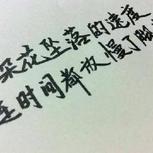 朵花坠落的速度
连时间都放慢了脚